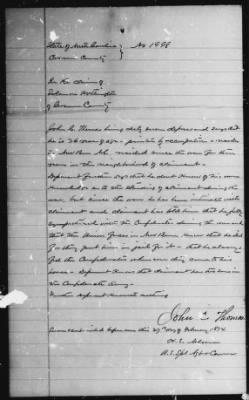 State of North Carolina } No 1988
Craven County
In the claim of
of Craven County
John E. Thomas being duly sworn deposes and says that
he is 36 years of age - painter by occupation - resides
in New Bern N.C. resided since the war for three
years in the neighborhood of claimant -
Deponent further says that he dont know of his own
knowledge as to the standing of claimant during the
war, but since the war he has been intimate with
claimant and claimant has told him that he fully
sympathized with the Confederates during the war and
that the Union forces in New Bern knew that he did
so - they put him in jail for it - that he always
fed the Confederates when ever they came to his
house - Deponent knows that claimant had two sons in
the Confederate Army -
Further deponent knoweth nothing
John E Thomas
Sworn and subscribed before me this 27th day of February 1874
U.S. Spl Agt